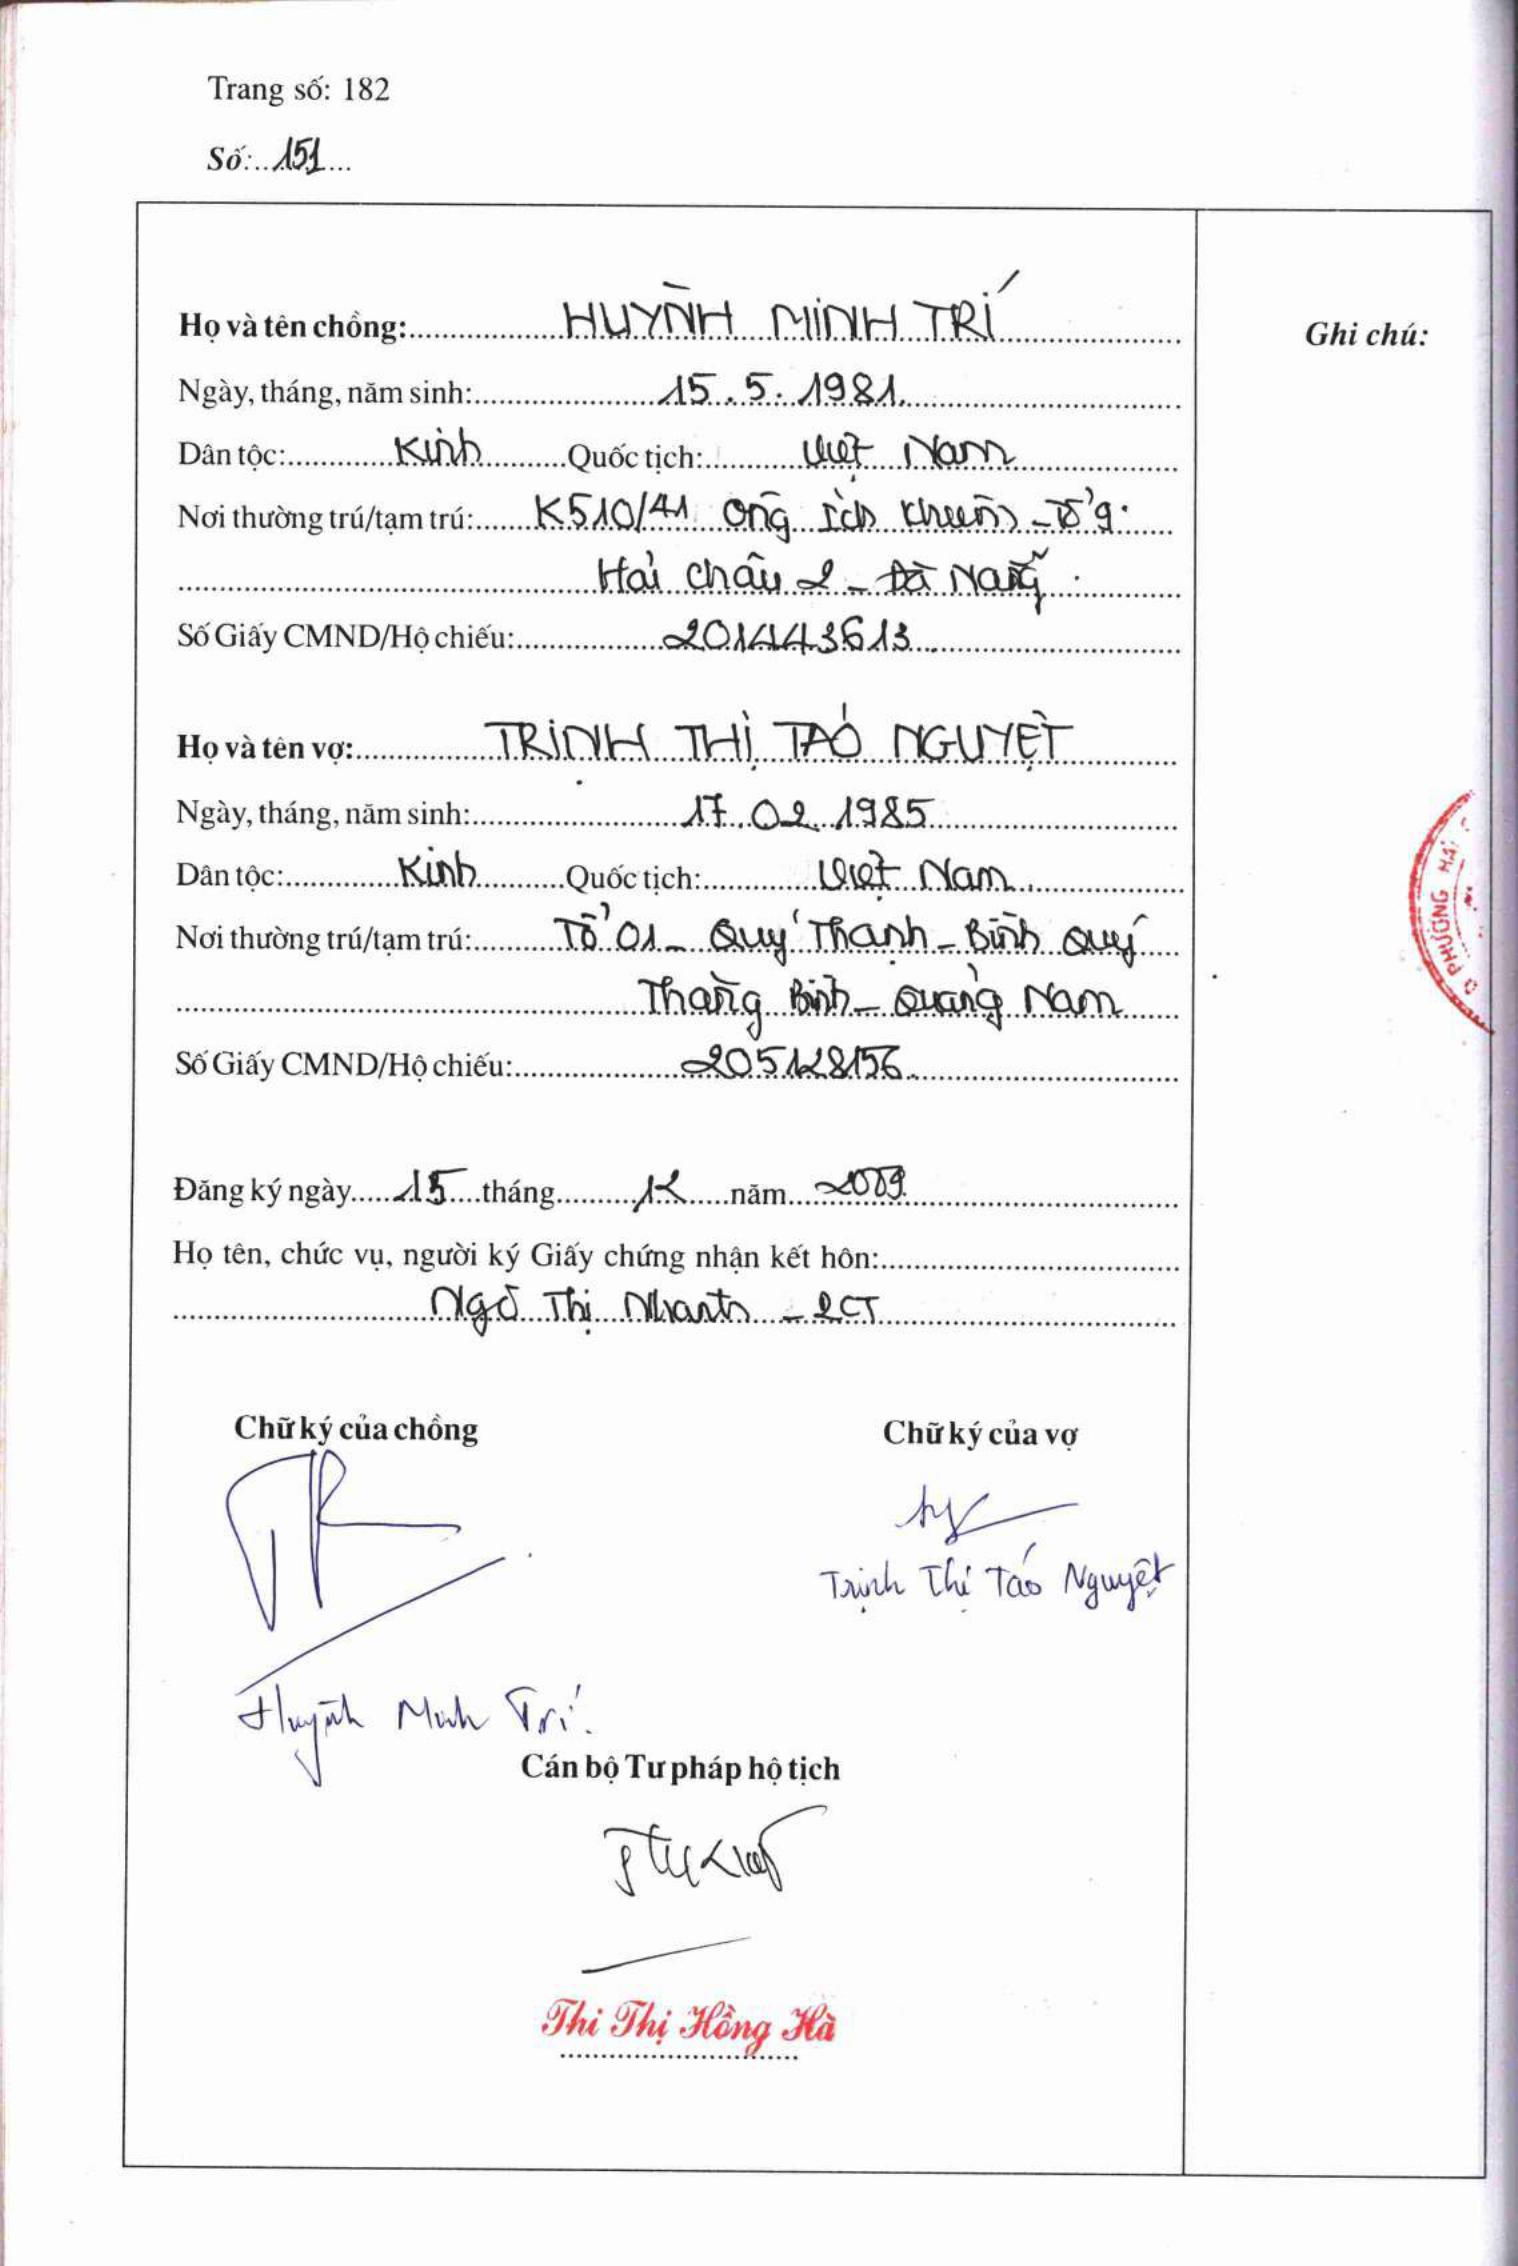 Trang số: 182
Số: 151
Họ và tên chồng: HUỲNH MINH TRÍ
Ghi chú:
Ngày, tháng, năm sinh: 15.5.1981.
Dân tộc: Kinh Quốc tịch: Việt Nam
Nơi thường trú/tạm trú: K510/41 Ông Ích Khiêm - Tổ 9.
Hải Châu 2 - Đà Nẵng.
Số Giấy CMND/Hộ chiếu: 201443613.
Họ và tên vợ: TRỊNH THỊ TÁO NGUYỆT
Ngày, tháng, năm sinh: 17.02.1985
Dân tộc: Kinh Quốc tịch: Việt Nam
Nơi thường trú/tạm trú: Tổ 01 - Quý Thạnh - Bình Quý
Thăng Bình - Quảng Nam
Số Giấy CMND/Hộ chiếu: 205128156.
PHƯỜNG HẢI
Đăng ký ngày 15 tháng 12 năm 2009
Họ tên, chức vụ, người ký Giấy chứng nhận kết hôn:
Ngô Thị - PCT
Chữ ký của chồng
Chữ ký của vợ
Trịnh Thị Táo Nguyệt
Huỳnh Minh Trí.
Cán bộ Tư pháp hộ tịch
Thi Thị Hồng Hà